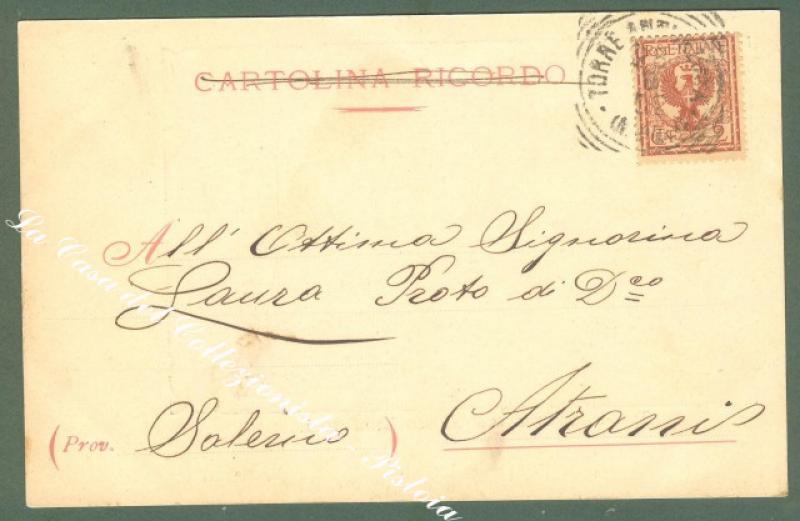 CARTOLINA RICORDO
TORRE
POSTE ITALIANE
2
All' Ottima Signorina
Laura Proto di Dco
Atrani
(Prov. Salerno)
La Casa del Collezionista - Pistoia